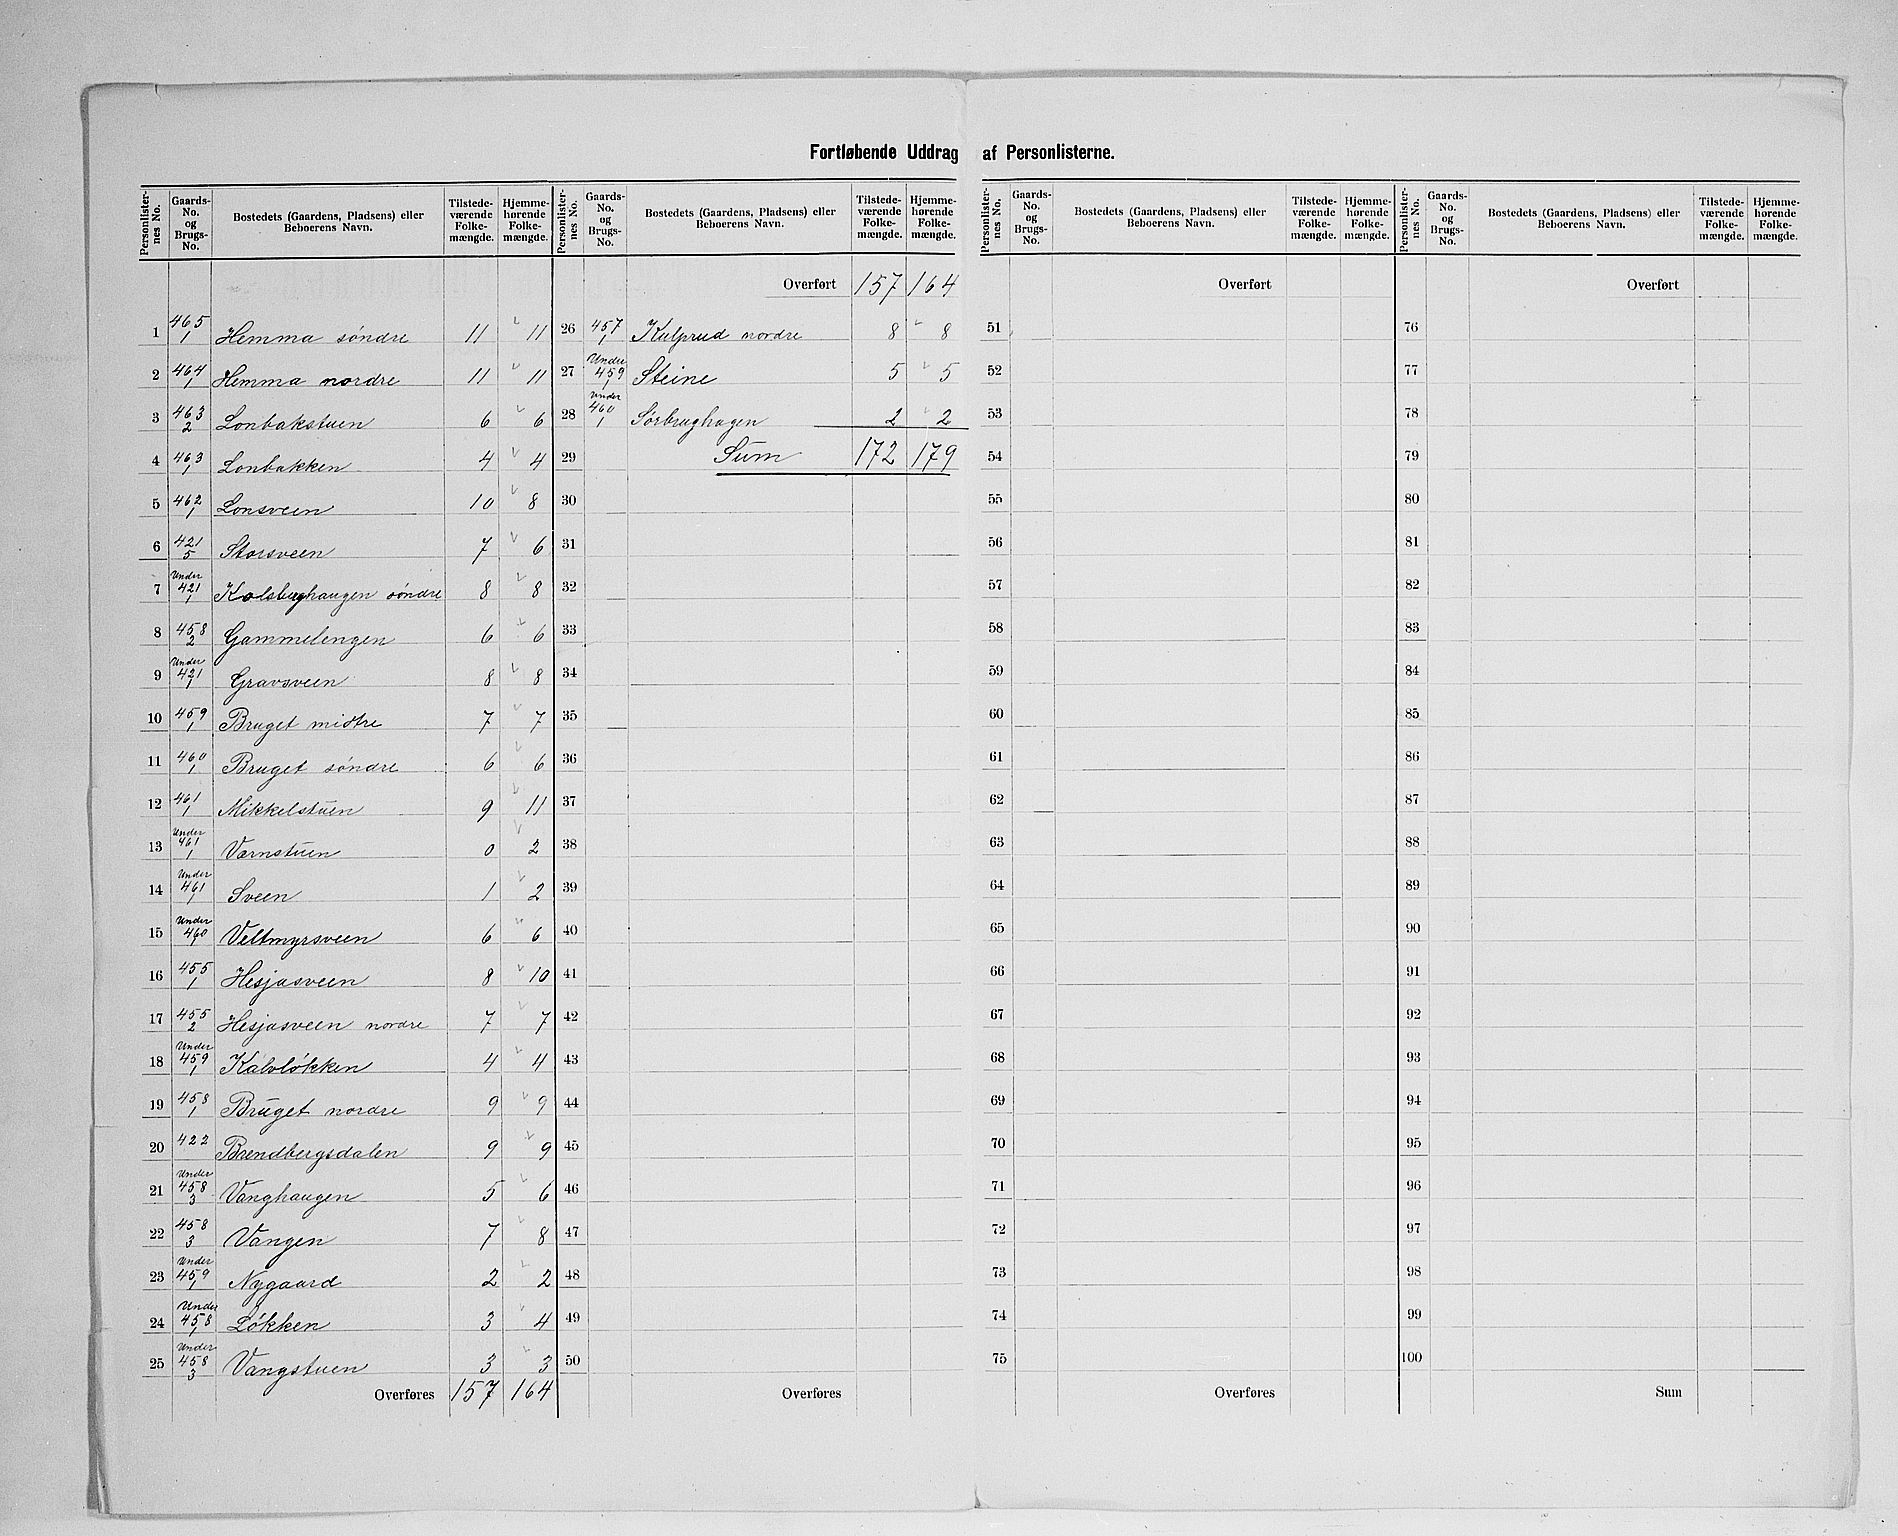 Fortløbende Uddrag af Personlisterne.
Personlisternes No. | Gaards-No. og Brugs-No. | Bostedets (Gaardens, Pladsens) eller Beboerens Navn. | Tilstedeværende Folkemængde. | Hjemmehørende Folkemængde.
1 465/1 Hemma søndre 11 11
2 464/1 Hemma nordre 11 11
3 463/2 Lonbakstuen 6 6
4 463/1 Lonbakken 4 4
5 462/1 Lonsveen 10 8
6 421/5 Storsveen 7 6
7 Under 421/1 Kolsberghaugen søndre 8 8
8 458/2 Gammelengen 6 6
9 Under 421/1 Gravsveen 8 8
10 459/1 Bruget midtre 7 7
11 460/1 Bruget søndre 6 6
12 461/1 Mikkelstuen 9 11
13 Under 461/1 Værnstuen 0 2
14 Under 461/1 Sveen 1 2
15 Under 460/1 Veltmyrsveen 6 6
16 455/1 Hesjasveen 8 10
17 455/2 Hesjasveen nordre 7 7
18 Under 459/1 Kalvløkken 4 4
19 458/1 Bruget nordre 9 9
20 422 Brendbergsdalen 9 9
21 Under 458/3 Vanghaugen 5 6
22 458/3 Vangen 7 8
23 Under 459/1 Nygaard 2 2
24 Under 458/1 Løkken 3 4
25 Under 458/3 Vangstuen 3 3
Overføres 157 164
Personlisternes No. | Gaards-No. og Brugs-No. | Bostedets (Gaardens, Pladsens) eller Beboerens Navn. | Tilstedeværende Folkemængde. | Hjemmehørende Folkemængde.
Overført 157 164
26 457/1 Kulprud nordre 8 8
27 Under 459/1 Steine 5 5
28 Under 460/1 Sørbrughagen 2 2
29 Sum 172 179
30
31
32
33
34
35
36
37
38
39
40
41
42
43
44
45
46
47
48
49
50
Overføres
Personlisternes No. | Gaards-No. og Brugs-No. | Bostedets (Gaardens, Pladsens) eller Beboerens Navn. | Tilstedeværende Folkemængde. | Hjemmehørende Folkemængde.
Overført
51
52
53
54
55
56
57
58
59
60
61
62
63
64
65
66
67
68
69
70
71
72
73
74
75
Overføres
Personlisternes No. | Gaards-No. og Brugs-No. | Bostedets (Gaardens, Pladsens) eller Beboerens Navn. | Tilstedeværende Folkemængde. | Hjemmehørende Folkemængde.
Overført
76
77
78
79
80
81
82
83
84
85
86
87
88
89
90
91
92
93
94
95
96
97
98
99
100
Sum